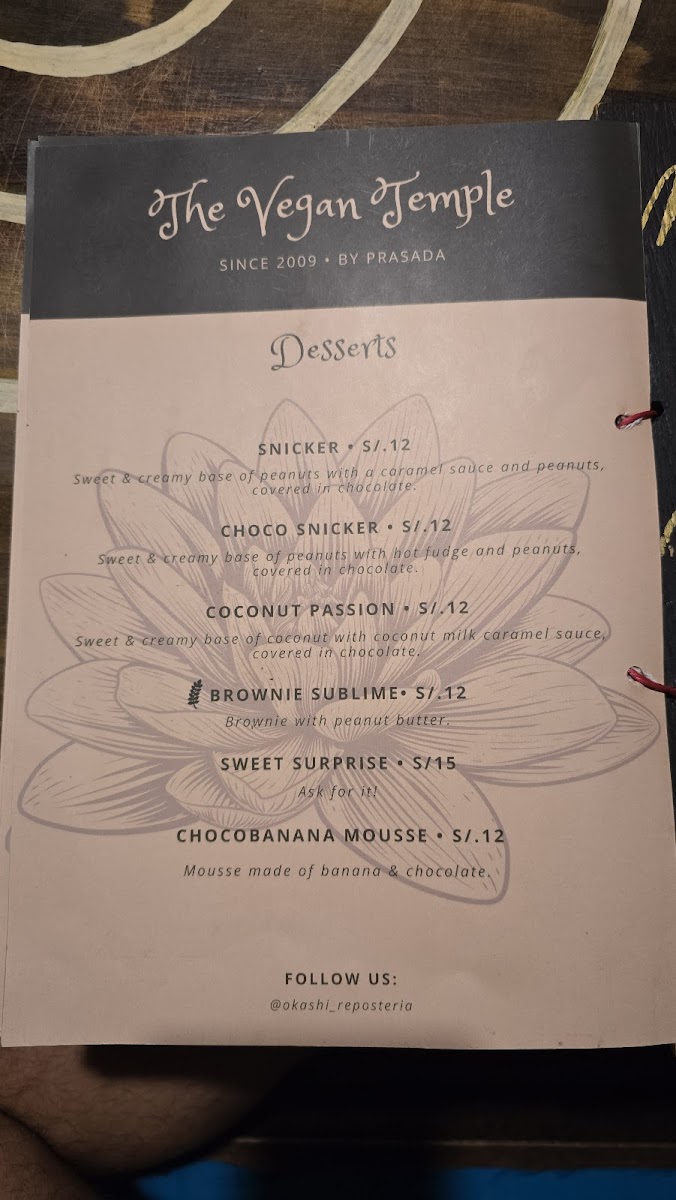 The Vegan Temple
SINCE 2009 • BY PRASADA
Desserts
SNICKER • S/.12
Sweet & creamy base of peanuts with a caramel sauce and peanuts,
covered in chocolate.
CHOCO SNICKER • S/.12
Sweet & creamy base of peanuts with hot fudge and peanuts,
covered in chocolate.
COCONUT PASSION • S/.12
Sweet & creamy base of coconut with coconut milk caramel sauce,
covered in chocolate.
BROWNIE SUBLIME• S/.12
Brownie with peanut butter.
SWEET SURPRISE • S/15
Ask for it!
CHOCOBANANA MOUSSE • S/.12
Mousse made of banana & chocolate.
FOLLOW US:
@okashi_reposteria